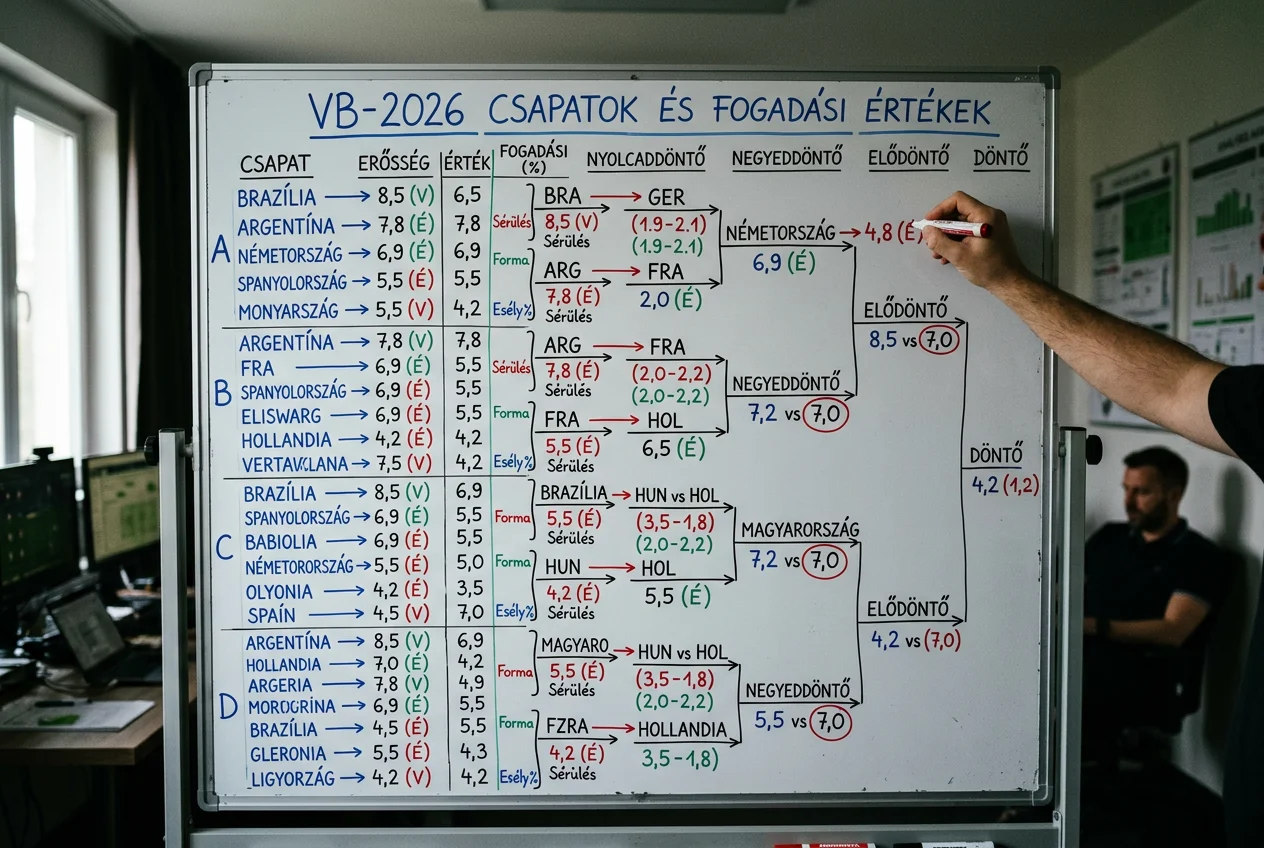 VB-2026 CSAPATOK ÉS FOGADÁSI ÉRTÉKEK
CSAPAT ERŐSSÉG ÉRTÉK FOGADÁSI (%) NYOLCADDÖNTŐ NEGYEDDÖNTŐ ELŐDÖNTŐ DÖNTŐ
A
BRAZÍLIA → 8,5 (V) 6,5
ARGENTÍNA → 7,8 (É) 7,8
NÉMETORSZÁG → 6,9 (É) 6,9
SPANYOLORSZÁG → 5,5 (É) 5,5
MONYARSZÁG → 5,5 (V) 4,2
Sérülés
Forma
Esély%
BRA → GER
8,5 (V) (1.9-2.1)
Sérülés (1.9-2.1)
ARG → FRA
7,8 (É) 2,0 (É)
Sérülés
B
ARGENTÍNA → 7,8 (V) 7,8
FRA → 6,9 (É) 5,5
SPANYOLORSZÁG → 6,9 (É) 5,5
ELISWARG → 6,9 (É) 5,5
HOLLANDIA → 4,2 (É) 4,2
→ 7,5 (V) 4,2
Sérülés
Forma
Esély%
ARG → FRA
7,8 (É) (2,0-2,2)
Sérülés (2,0-2,2)
FRA → HOL
5,5 (É) 6,5 (É)
Sérülés
C
BRAZÍLIA → 8,5 (V) 6,9
SPANYOLORSZÁG → 6,9 (É) 5,5
BABIOLIA → 6,9 (É) 5,5
NÉMETORORSZÁG → 5,5 (É) 5,0
OLYONIA → 4,2 (É) 3,5
SPAÍN → 4,5 (V) 7,0
Forma
Forma
Esély%
BRAZÍLIA → HUN vs HOL
5,5 (É) (3,5-1,8)
Sérülés (2,0-2,2)
HUN → HOL
4,2 (É) 5,5 (É)
Sérülés
D
ARGENTÍNA → 8,5 (V) 6,9
HOLLANDIA → 7,0 (É) 4,2
ARGERIA → 7,8 (V) 4,9
→ 6,9 (É) 5,5
BRAZÍLIA → 4,5 (É) 5,5
GLERONIA → 5,5 (É) 4,3
LIGYORZÁG → 4,2 (V) 4,2
Forma
Forma
Esély%
MAGYARO → HUN vs HOL
5,5 (É) (3,5-1,8)
Sérülés (2,0-2,2)
FZRA → HOLLANDIA
4,2 (É) 3,5-1,8)
Sérülés
NÉMETORSZÁG → 4,8 (É)
6,9 (É)
NEGYEDDÖNTŐ
7,2 vs 7,0
MAGYARORSZÁG
7,2 vs 7,0
NEGYEDDÖNTŐ
5,5 vs 7,0
ELŐDÖNTŐ
8,5 vs 7,0
ELŐDÖNTŐ
4,2 vs (7,0)
DÖNTŐ
4,2 (1,2)